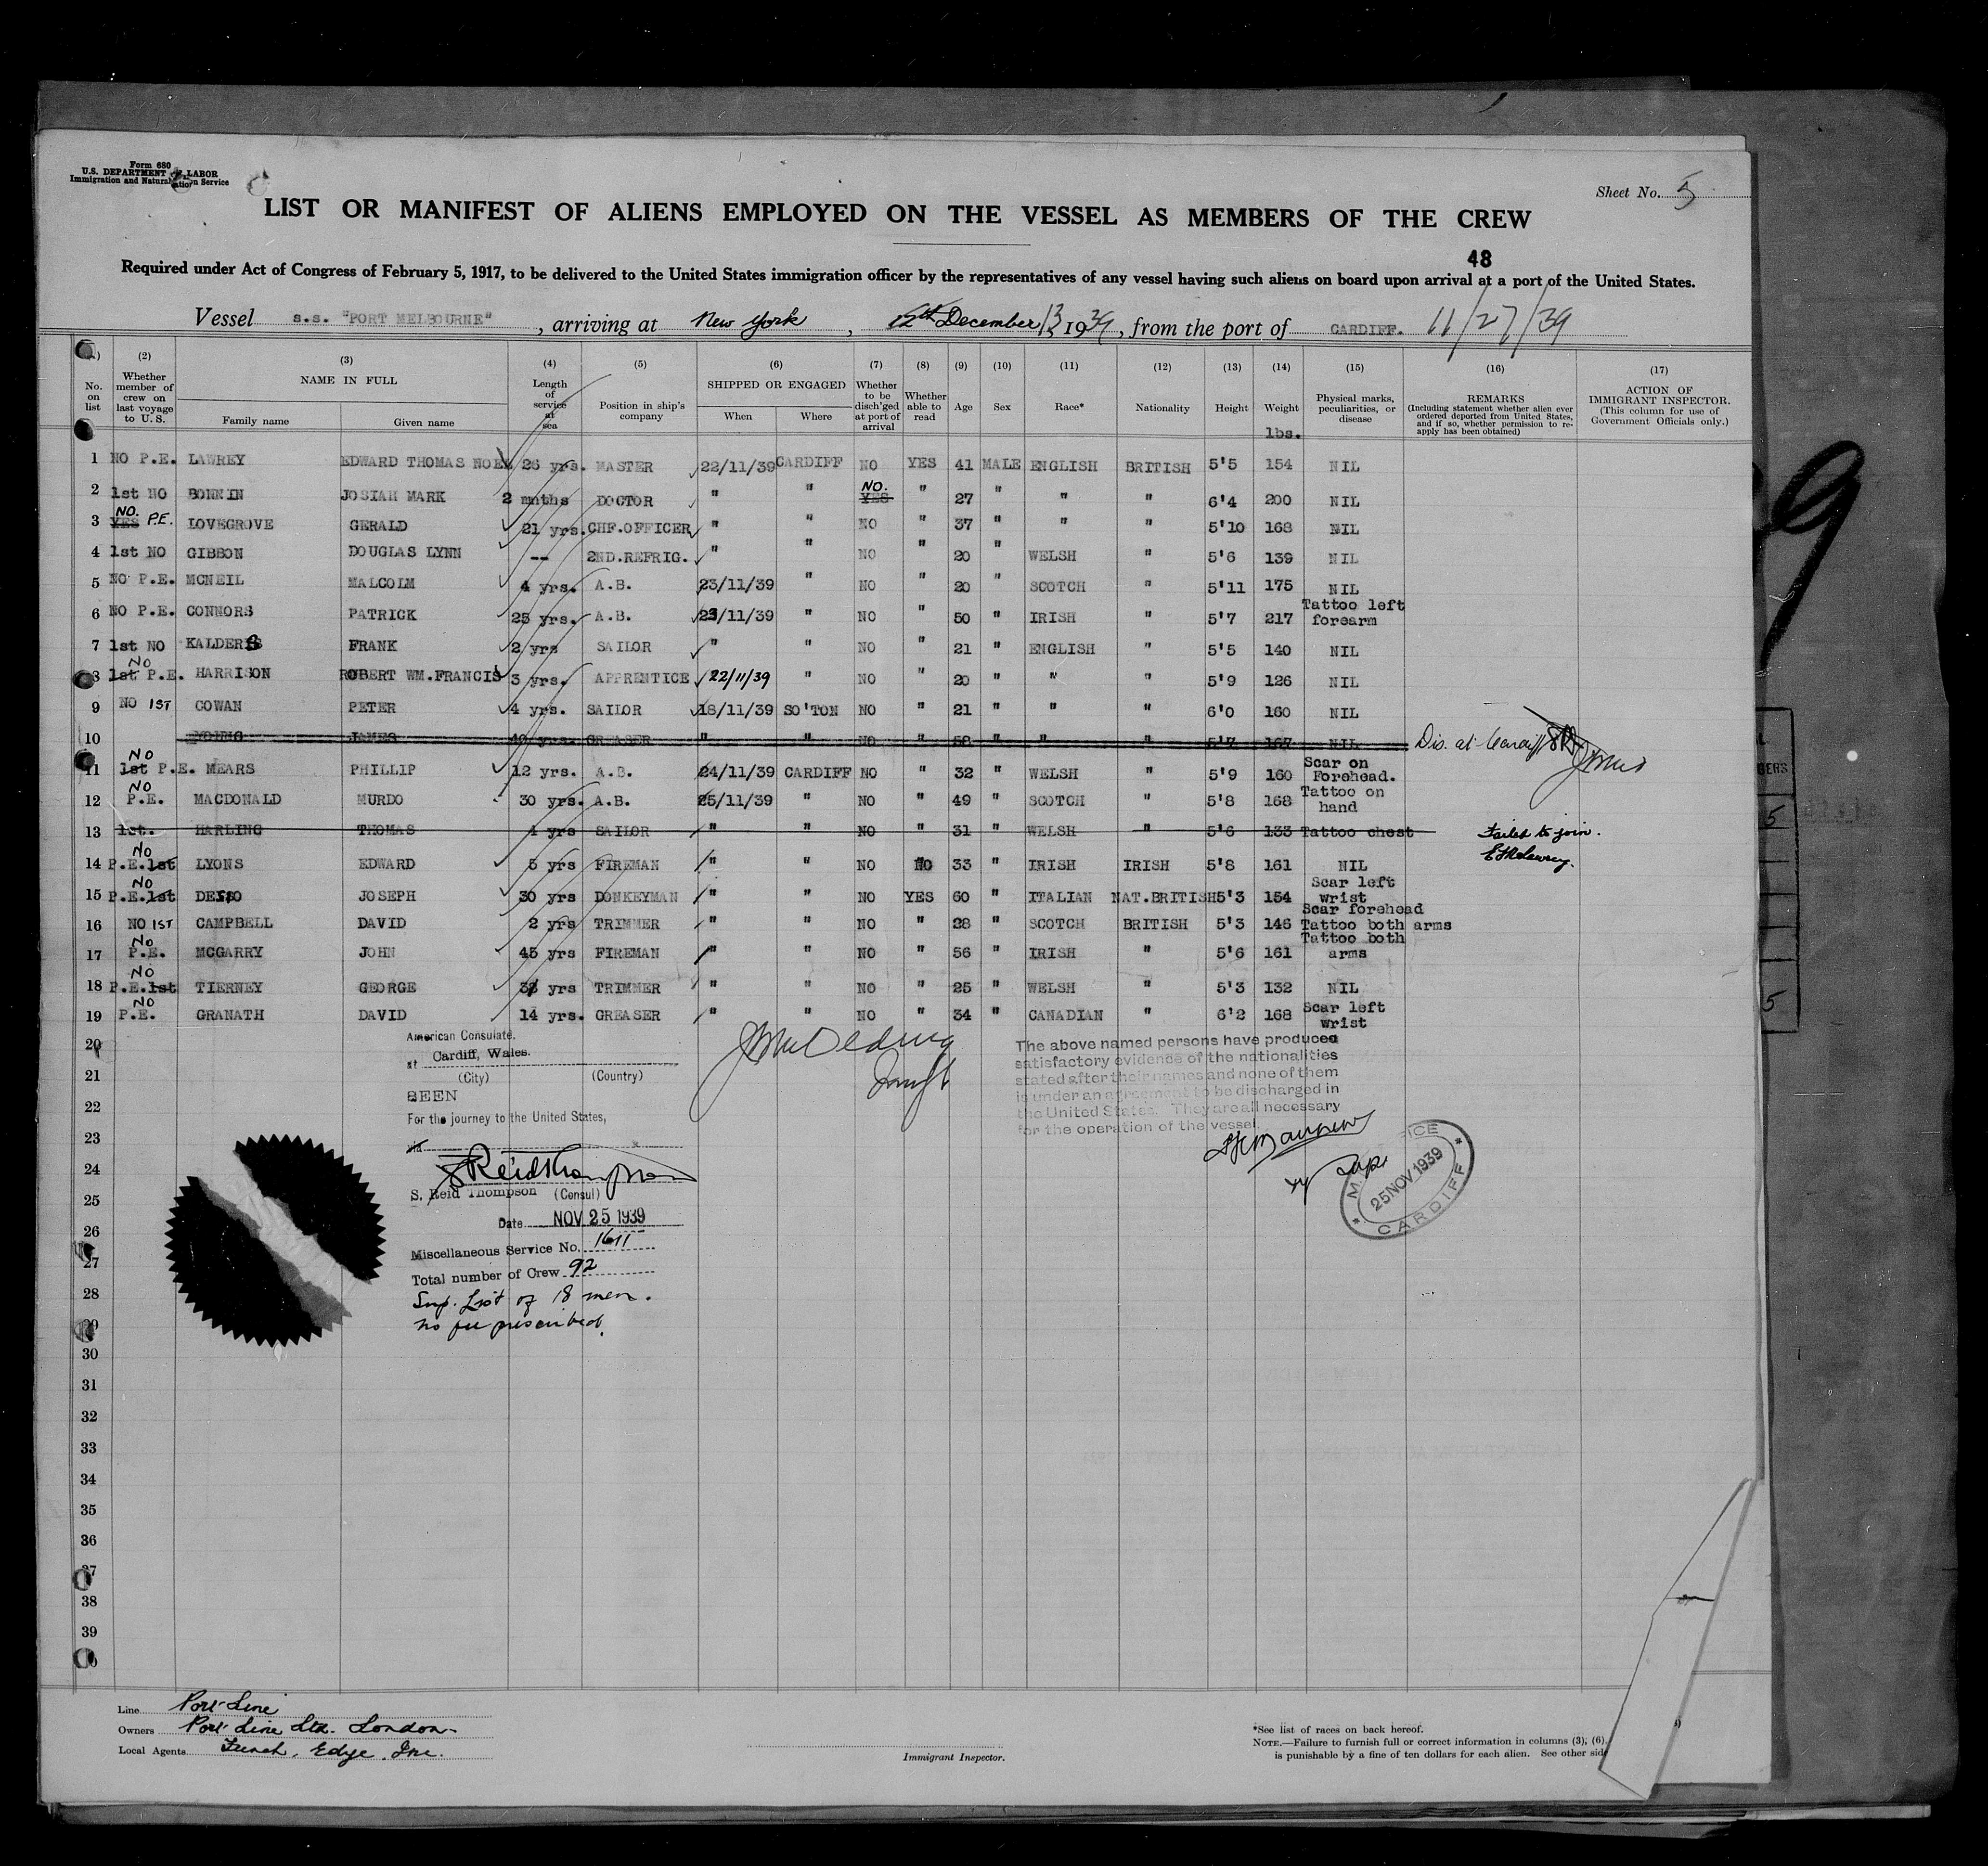 Form 680
U.S. DEPARTMENT OF LABOR
Immigration and Naturalization Service
Sheet No. 5
LIST OR MANIFEST OF ALIENS EMPLOYED ON THE VESSEL AS MEMBERS OF THE CREW
48
Required under Act of Congress of February 5, 1917, to be delivered to the United States immigration officer by the representatives of any vessel having such aliens on board upon arrival at a port of the United States.
Vessel s.s. "PORT MELBOURNE", arriving at New York, 12th December/13 1939, from the port of CARDIFF. 11/27/39
(2) (3) (4) (5) (6) (7) (8) (9) (10) (11) (12) (13) (14) (15) (16) (17)
No. on list
Whether member of crew on last voyage to U. S.
NAME IN FULL
Family name Given name
Length of service at sea
Position in ship's company
SHIPPED OR ENGAGED
When Where
Whether to be disch'ged at port of arrival
Whether able to read
Age
Sex
Race*
Nationality
Height
Weight
lbs.
Physical marks, peculiarities, or disease
REMARKS
(Including statement whether alien ever ordered deported from United States, and if so, whether permission to re-apply has been obtained)
ACTION OF IMMIGRANT INSPECTOR.
(This column for use of Government Officials only.)
1 NO P.E. LAWREY EDWARD THOMAS NOEL 26 yrs. MASTER 22/11/39 CARDIFF NO YES 41 MALE ENGLISH BRITISH 5'5 154 NIL
2 1st NO BONNIN JOSIAH MARK 2 mnths DOCTOR " " NO. YES " 27 " " " 6'4 200 NIL
3 NO. YES P.E. LOVEGROVE GERALD 21 yrs. CHF.OFFICER " " NO " 37 " " " 5'10 168 NIL
4 1st NO GIBBON DOUGLAS LYNN -- 2ND.REFRIG. " " NO " 20 " WELSH " 5'6 139 NIL
5 NO P.E. MCNEIL MALCOLM 4 yrs. A.B. 23/11/39 " NO " 20 " SCOTCH " 5'11 175 NIL
6 NO P.E. CONNORS PATRICK 25 yrs. A.B. 23/11/39 " NO " 50 " IRISH " 5'7 217 Tattoo left forearm
7 1st NO KALDERS FRANK 2 yrs SAILOR " " NO " 21 " ENGLISH " 5'5 140 NIL
8 NO 1st P.E. HARRISON ROBERT WM.FRANCIS 3 yrs. APPRENTICE 22/11/39 " NO " 20 " " " 5'9 126 NIL
9 NO 1ST COWAN PETER 4 yrs. SAILOR 18/11/39 SO'TON NO " 21 " " " 6'0 160 NIL
10 YOUNG JAMES 40 yrs. GREASER " " NO " 58 " " " 5'7 167 NIL Dis. at Cardiff
11 NO 1st P.E. MEARS PHILLIP 12 yrs. A.B. 24/11/39 CARDIFF NO " 32 " WELSH " 5'9 160 Scar on Forehead.
12 NO P.E. MACDONALD MURDO 30 yrs. A.B. 25/11/39 " NO " 49 " SCOTCH " 5'8 168 Tattoo on hand
13 1st. HARLING THOMAS 4 yrs SAILOR " " NO " 31 " WELSH " 5'6 133 Tattoo chest Failed to join. E T N Lawrey.
14 NO P.E.1st LYONS EDWARD 5 yrs FIREMAN " " NO NO 33 " IRISH IRISH 5'8 161 NIL
15 NO P.E.1st JOSEPH 30 yrs DONKEYMAN " " NO YES 60 " ITALIAN NAT.BRITISH 5'3 154 Scar left wrist
16 NO 1ST CAMPBELL DAVID 2 yrs TRIMMER " " NO " 28 " SCOTCH BRITISH 5'3 146 Scar forehead Tattoo both arms
17 NO P.E. MCGARRY JOHN 45 yrs FIREMAN " " NO " 56 " IRISH " 5'6 161 Tattoo both arms
18 NO P.E.1st TIERNEY GEORGE yrs TRIMMER " " NO " 25 " WELSH " 5'3 132 NIL
19 NO P.E. GRANATH DAVID 14 yrs. GREASER " " NO " 34 " CANADIAN " 6'2 168 Scar left wrist
20
21
22
23
24
25
26
27
28
29
30
31
32
33
34
35
36
37
38
39
American Consulate.
at Cardiff, Wales.
(City) (Country)
SEEN
For the journey to the United States,
via
S Reid Thompson
S. Reid Thompson (Consul)
Date NOV 25 1939
Miscellaneous Service No. 1611
Total number of Crew 92
Sup. List of 18 men.
No fee prescribed.
The above named persons have produced
satisfactory evidence of the nationalities
stated after their names and none of them
is under an agreement to be discharged in
the United States. They are all necessary
for the operation of the vessel.
25 NOV 1939
CARDIFF
Line Port Line
Owners Port Line Ltd. London.
Local Agents Funch, Edye, Inc.
Immigrant Inspector.
*See list of races on back hereof.
NOTE.—Failure to furnish full or correct information in columns (3), (6),
is punishable by a fine of ten dollars for each alien. See other side